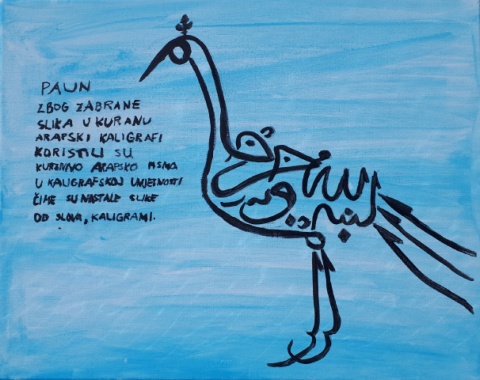 PAUN
ZBOG ZABRANE
SLIKA U KURANU
ARAPSKI KALIGRAFI
KORISTILI SU
KURZIVNO ARAPSKO PISMO
U KALIGRAFSKOJ UMJETNOSTI
ČIME SU NASTALE SLIKE
OD SLOVA, KALIGRAMI.